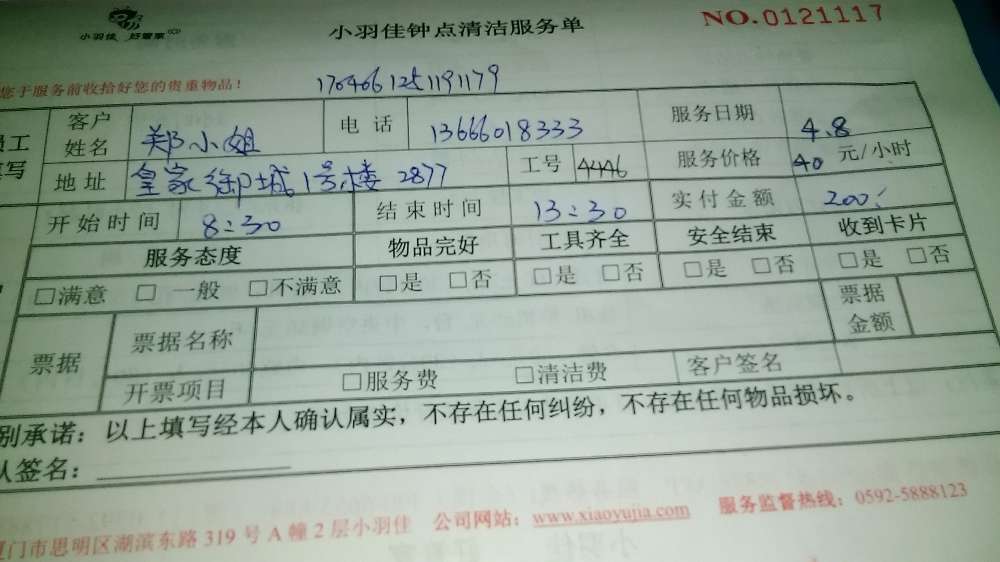 小羽佳 好管家
小羽佳钟点清洁服务单
NO.0121117
您于服务前收拾好您的贵重物品!
1704061251191179
员工
填写
客户姓名 郑小姐 电话 13666018333 服务日期 4.8
地址 皇家御城1号楼2877 工号 4446 服务价格 40 元/小时
开始时间 8:30 结束时间 13:30 实付金额 200
服务态度 物品完好 工具齐全 安全结束 收到卡片
□满意 □一般 □不满意 □是 □否 □是 □否 □是 □否 □是 □否
票据 票据名称 票据金额
开票项目 □服务费 □清洁费 客户签名
别承诺:以上填写经本人确认属实,不存在任何纠纷,不存在任何物品损坏。
人签名:
厦门市思明区湖滨东路319号A幢2层小羽佳 公司网站:www.xiaoyujia.com 服务监督热线:0592-5888123